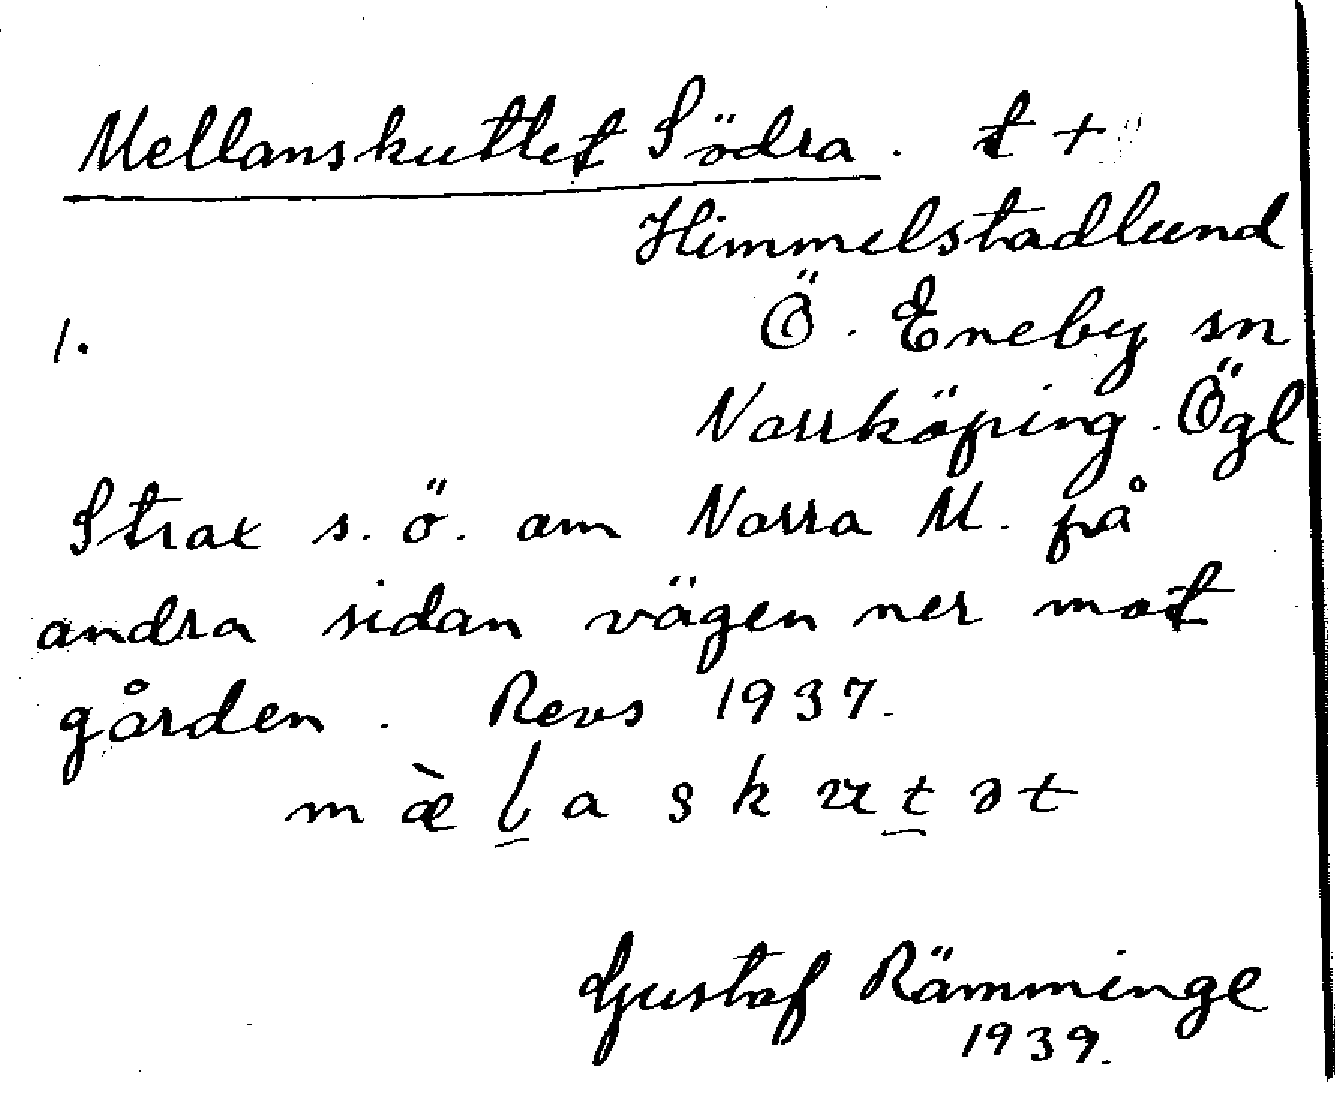 Mellanskuttet Södra. t +
Himmelstadlund
1. Ö. Eneby sn
Norrköping. Ögl
Strax s. ö. om Norra M. på
andra sidan vägen ner mot
gården. Revs 1937.
m æ̀ l̲ a s k u t̲ ə t
Gustaf Rämminge
1939.